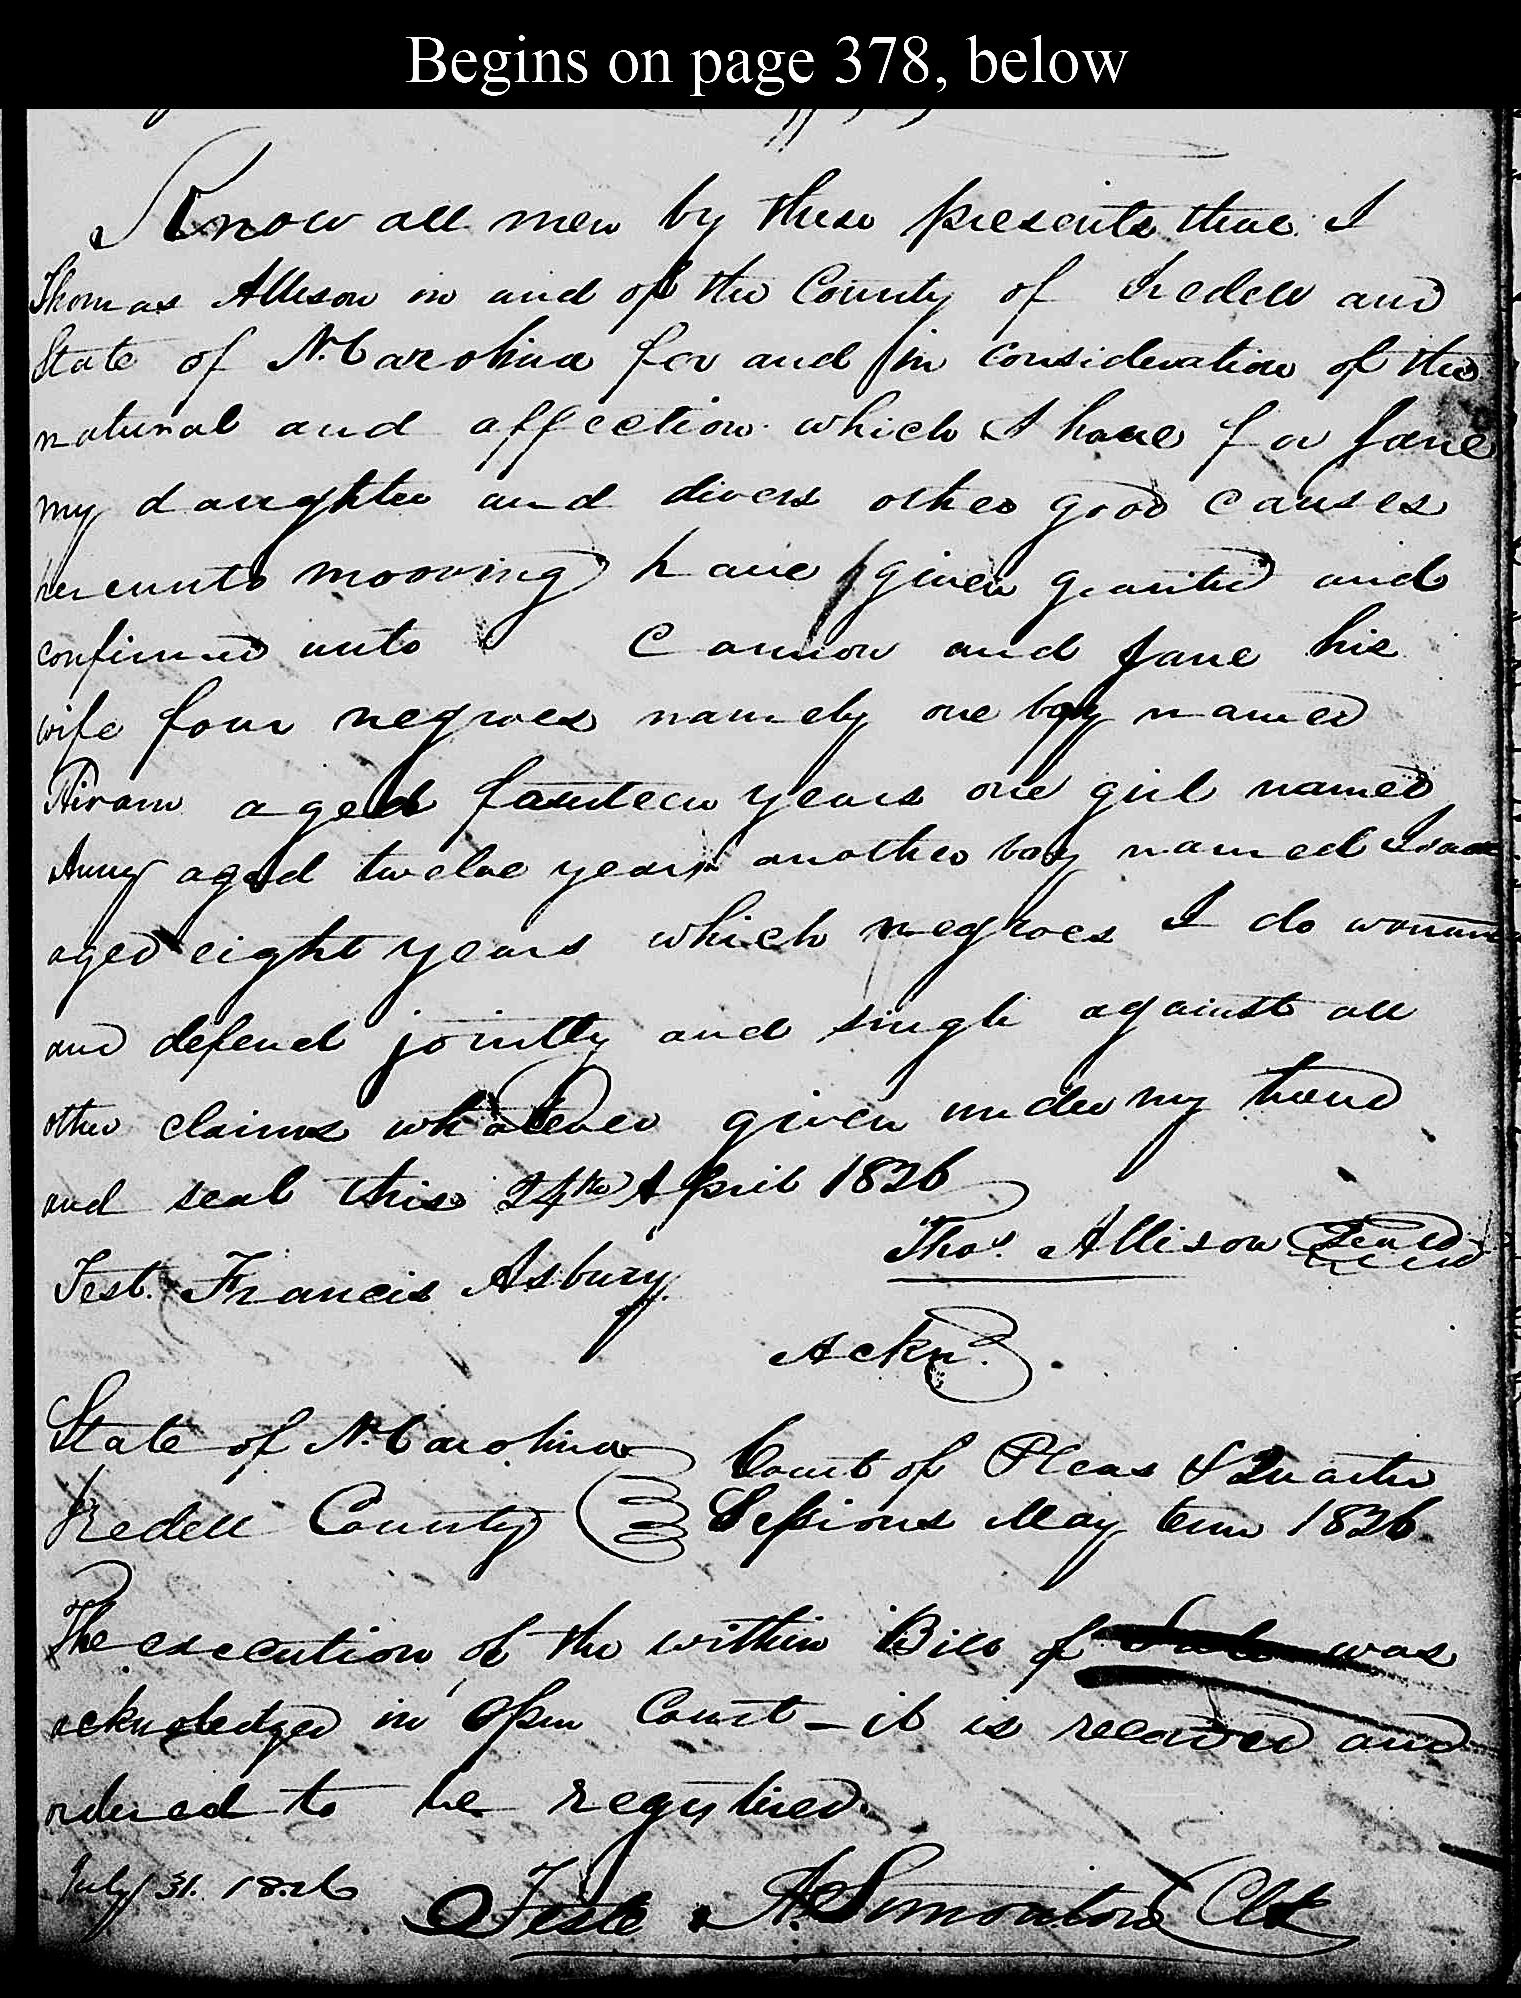 Begins on page 378, below
Know all men by these presents that I
Thomas Allison in and of the County of Iredell and
State of N. Carolina for and in consideration of the
natural and affection which I have for Jane
my daughter and divers other good causes
hereunto mooving have given granted and
confirmed unto Cannon and Jane his
wife four negroes namely one boy named
Hiram aged fourteen years one girl named
Anny aged twelve years another boy named Isaac
aged eight years which negroes I do
and defend jointly and single against all
other claims whatever given under my hand
and seal this 24th April 1826
Thos. Allison Seal
Test. Francis Asbury
Ackn.
State of N. Carolina Court of Pleas & Quarter
Iredell County Sessions May term 1826
The execution of the within Bill of Sale was
acknoledged in open Court - it is recorded and
ordered to be registered.
July 31. 1826
Teste A. Simonton Clk